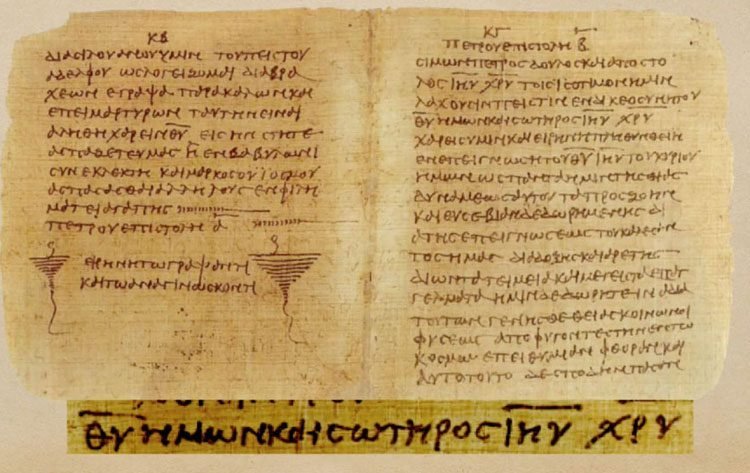 ΚΒ
ΔΙΑ ϹΙΛΟΥΑΝΟΥ ΥΜΙΝ ΤΟΥ ΠΙϹΤΟΥ
ΑΔΕΛΦΟΥ ΩϹ ΛΟΓΕΙΖΟΜΑΙ ΔΙΑ ΒΡΑ
ΧΕΩΝ ΕΓΡΑΨΑ ΠΑΡΑΚΑΛΩΝ ΚΑΙ
ΕΠΕΙΜΑΡΤΥΡΩΝ ΤΑΥΤΗΝ ΕΙΝΑΙ
ΑΛΗΘΗ ΧΑΡΕΙΝ ΘΥ ΕΙϹ ΗΝ ϹΤΗΤΕ
ΑϹΠΑΖΕΤΕ ΥΜΑϹ Η ΕΝ ΒΑΒΥΛΩΝΙ
ϹΥΝΕΚΛΕΚΤΗ ΚΑΙ ΜΑΡΚΟϹ Ο ΥΙΟϹ ΜΟΥ
ΑϹΠΑϹΑϹΘΑΙ ΑΛΛΗΛΟΥϹ ΕΝ ΦΙΛΗ
ΜΑΤΕΙ ΑΓΑΠΗϹ
ΠΕΤΡΟΥ ΕΠΙϹΤΟΛΗ Α
ΕΙΡΗΝΗ ΤΩ ΓΡΑΨΑΝΤΙ
ΚΑΙ ΤΩ ΑΝΑΓΙΝΩϹΚΟΝΤΙ
ΚΓ
ΠΕΤΡΟΥ ΕΠΙϹΤΟΛΗ Β
ϹΙΜΩΝ ΠΕΤΡΟϹ ΔΟΥΛΟϹ ΚΑΙ ΑΠΟϹΤΟ
ΛΟϹ ΙΗΥ ΧΡΥ ΤΟΙϹ ΙϹΟΤΙΜΟΝ ΗΜΙΝ
ΛΑΧΟΥϹΙΝ ΠΕΙϹΤΙΝ ΕΝ ΔΙΚΕΟϹΥΝΗ ΤΟΥ
ΘΥ ΗΜΩΝ ΚΑΙ ϹΩΤΗΡΟϹ ΙΗΥ ΧΡΥ
ΧΑΡΕΙϹ ΥΜΙΝ ΚΑΙ ΕΙΡΗΝΗ ΠΛΗΘΥΝΘΕΙΗ
ΕΝ ΕΠΕΙΓΝΩϹΗ ΤΟΥ ΘΥ ΙΗΥ ΤΟΥ ΚΥΡΙΟΥ
ΗΜΩΝ ΩϹ ΠΑΝΤΑ ΗΜΙΝ ΤΗϹ ΘΙΑϹ
ΔΥΝΑΜΕΩϹ ΑΥΤΟΥ ΤΑ ΠΡΟϹ ΖΩΗΝ
ΚΑΙ ΕΥϹΕΒΙΑΝ ΔΕΔΩΡΗΜΕΝΗϹ ΔΙ
Α ΤΗϹ ΕΠΕΙΓΝΩϹΕΩϹ ΤΟΥ ΚΑΛΕϹΑΝ
ΤΟϹ ΗΜΑϹ ΔΙΑ ΔΟΞΗϹ ΚΑΙ ΑΡΕΤΗϹ
ΔΙ ΩΝ ΤΑ ΤΕΙΜΕΙΑ ΚΑΙ ΜΕΓΙϹΤΑ ΕΠΑΓ
ΓΕΛΜΑΤΑ ΗΜΙΝ ΔΕΔΩΡΗΤΕ ΙΝΑ ΔΙΑ
ΤΟΥΤΩΝ ΓΕΝΗϹΘΕ ΘΕΙΑϹ ΚΟΙΝΩΝΟΙ
ΦΥϹΕΩϹ ΑΠΟΦΥΓΟΝΤΕϹ ΤΗΝ ΕΝ ΤΩ
ΚΟϹΜΩ ΕΠΕΙΘΥΜΙΑΝ ΦΘΟΡΑϹ ΚΑΙ
ΑΥΤΟ ΤΟΥΤΟ ΔΕ ϹΠΟΥΔΗΝ ΠΑϹΑΝ
ΘΥ ΗΜΩΝ ΚΑΙ ϹΩΤΗΡΟϹ ΙΗΥ ΧΡΥ